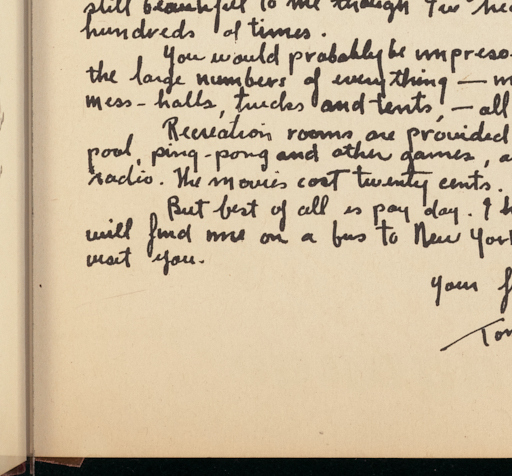 still beautiful to me though I've hea
hundreds of times.
You would probably be impress
the large numbers of everything — m
mess-halls, trucks and tents, — all
Recreation rooms are provided
pool, ping-pong and other games, a
radio. The movies cost twenty cents.
But best of all is pay day. I h
will find me on a bus to New York
visit you.
Your f
Tom